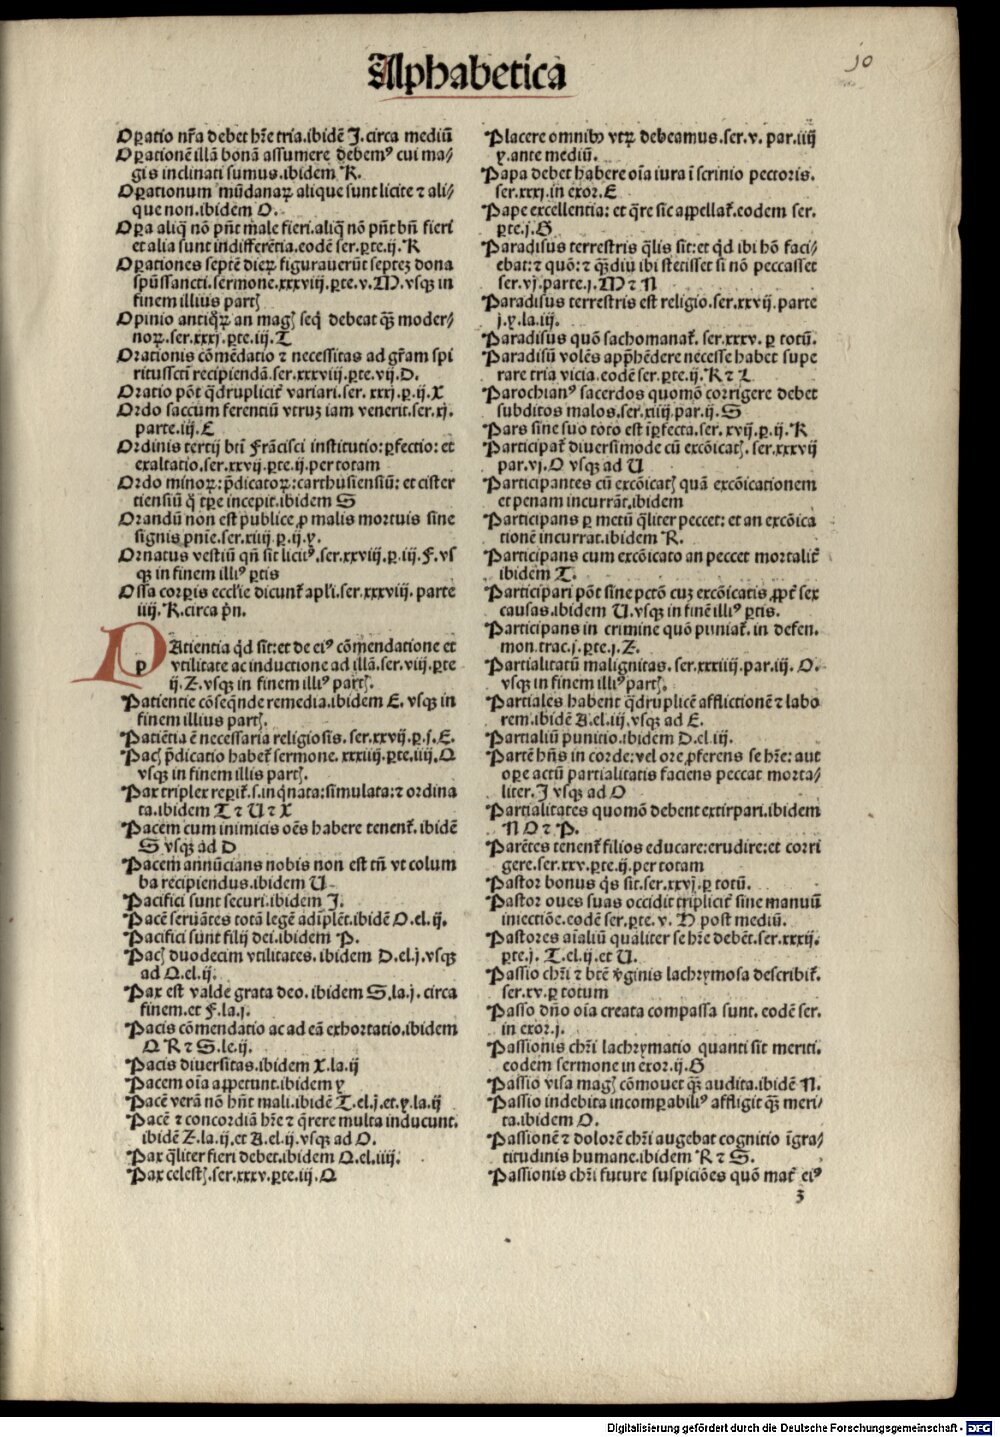 Alphabetica
10
Oꝑatio nr̃a debet hr̃e tria.ibidẽ J.circa mediũ
Oꝑationẽ illã bonã assumere debemꝰ cui ma/
gis inclinati sumus.ibidem R.
Oꝑationum mũdanaꝝ alique sunt licite ⁊ ali/
que non.ibidem O.
Oꝑa aliq̃ nõ pñt male fieri.aliq̃ nõ pñt bñ fieri
et alia sunt indifferẽtia.eodẽ ser.ꝑte.ij.K
Oꝑationes septẽ dieꝝ figurauerũt septeꝫ dona
spũssancti.sermone.xxxviij.ꝑte.v.M.vsqꝫ in
finem illius partꝭ
Opinio antiq̃ꝝ an magꝭ seq̃ debeat q̃ꝫ moder/
noꝝ.ser.xxxj.ꝑte.iij.T
Orationis cõmẽdatio ⁊ necessitas ad gr̃am spi
ritussctĩ recipiendã.ser.xxxviij.ꝑte.vij.D.
Oratio põt q̃druplicit̃ variari.ser.xxxj.p.ij.X
Ordo saccum ferentiũ vtruꝫ iam venerit.ser.xj.
parte.iij.E
Ordinis tertij bti Frãcisci institutio:ꝑfectio: et
exaltatio.ser.xxvij.ꝑte.ij.per totam
Ordo minoꝝ:p̃dicatoꝝ:carthusiensiũ: et cister
tiensiũ q̃ tꝑe incepit.ibidem S
Orandũ non est publice ꝓ malis mortuis sine
signis pñie.ser.xiiij.p.ij.y.
Ornatus vestiũ qñ sit licitꝰ.ser.xxviij.p.iij.F.vs
qꝫ in finem illiꝰ ꝑtis
Ossa corꝑis eccĺie dicunt̃ apĺi.ser.xxxviij. parte
iiij.K.circa p̃n.
PAtientia q̃d sit:et de eiꝰ cõmendatione et
vtilitate ac inductione ad illã.ser.viij.ꝑte
ij.Z.vsqꝫ in finem illiꝰ partꝭ.
Patientie cõseq̃nde remedia.ibidem E. vsqꝫ in
finem illius partꝭ.
Patiẽtia ẽ necessaria religiosis. ser.xxvij.p.s.E.
Pacꝭ p̃dicatio habet̃ sermone. xxxiij.ꝑte.iiij.Q
vsqꝫ in finem illis partꝭ.
Pax triplex reperit̃.s.inq̃nata:simulata:⁊ ordina
ta.ibidem T ⁊ U ⁊ X
Pacem cum inimicis oẽs habere tenent̃. ibidẽ
S vsqꝫ ad D
Pacem annũcians nobis non est tm̃ vt colum
ba recipiendus.ibidem U.
Pacifici sunt securi.ibidem J.
Pacẽ seruãtes totã legẽ adiplẽt.ibidẽ O.el.ij.
Pacifici sunt filij dei.ibidem P.
Pacꝭ duodecim vtilitates. ibidem D.el.j.vsqꝫ
ad Q.el.ij.
Pax est valde grata deo. ibidem S.la.j. circa
finem.et F.la.j.
Pacis cõmendatio ac ad eã exhortatio.ibidem
Q R ⁊ S.le.ij.
Pacis diuersitas.ibidem X.la.ij
Pacem oĩa appetunt.ibidem y
Pacẽ verã nõ hñt mali.ibidẽ T.el.j.et.y.la.ij
Pacẽ ⁊ concordiã hr̃e ⁊ q̃rere multa inducunt.
ibidẽ Z.la.ij.et A.el.ij.vsqꝫ ad O.
Pax q̃liter fieri debet.ibidem Q.el.iiij.
Pax celestꝭ.ser.xxxv.ꝑte.iij.Q
Placere omnibꝰ vtꝝ debeamus.ser.v. par.iiij
y.ante mediũ.
Papa debet habere oĩa iura ĩ scrinio pectoris.
ser.xxxj.in exor.E
Pape excellentia: et q̃re sic appellat̃.eodem ser.
ꝑte.j.G
Paradisus terrestris q̃lis sit:et q̃d ibi hõ faci/
ebat:⁊ quõ:⁊ q̃ꝫdiu ibi stetisset si nõ peccasset
ser.vj.parte.j.M ⁊ N
Paradisus terrestris est religio.ser.xxvij.parte
j.y.la.iij.
Paradisus quõ sachomanat̃. ser.xxxv. ꝑ totũ.
Paradisũ volẽs appr̃hẽdere necesse habet supe
rare tria vicia.eodẽ ser.ꝑte.ij.K ⁊ L
Parochianꝰ sacerdos quomõ corrigere debet
subditos malos.ser.xiiij.par.ij.S
Pars sine suo toto est ĩꝑfecta.ser.xvij.p.ij.K
Participat̃ diuersimode cũ excõicatꝭ. ser.xxxvij
par.vj.O vsqꝫ ad U
Participantes cũ excõicatꝭ quã excõicationem
et penam incurrãt.ibidem
Participans ꝑ metũ q̃liter peccet: et an excõica
tionẽ incurrat.ibidem R.
Participans cum excõicato an peccet mortalit̃
ibidem T.
Participari põt sine pctõ cuꝫ excõicatis ꝓpt̃ sex
causas.ibidem U.vsqꝫ in finẽ illiꝰ ꝑtis.
Participans in crimine quõ puniat̃. in defen.
mon.trac.j.ꝑte.j.Z.
Partialitatũ malignitas. ser.xxxiiij.par.iij. O.
vsqꝫ in finem illiꝰ partꝭ.
Partiales habent q̃druplicẽ afflictionẽ ⁊ labo
rem.ibidẽ A.el.iij.vsqꝫ ad E.
Partialiũ punitio.ibidem D.el.iij.
Partẽ hñs in corde:vel ore ꝓferens se hr̃e: aut
oꝑe actũ partialitatis faciens peccat morta/
liter.J vsqꝫ ad O
Partialitates quomõ debent extirpari.ibidem
N O ⁊ P.
Parẽtes tenent̃ filios educare:erudire:et corri
gere.ser.xxv.ꝑte.ij.per totam
Pastor bonus q̃s sit.ser.xxvj.ꝑ totũ.
Pastor oues suas occidit triplicit̃ sine manuũ
iniectiõe.eodẽ ser.ꝑte. v. H post mediũ.
Pastores aĩaliũ qualiter se hr̃e debẽt.ser.xxxij.
ꝑte.j. T.el.ij.et U.
Passio chr̃i ⁊ btẽ v̓ginis lachrymosa describit̃.
ser.xv.ꝑ totum
Passo dño oĩa creata compassa sunt. eodẽ ser.
in exor.j.
Passionis chr̃i lachrymatio quanti sit meriti.
eodem sermone in exor.ij.G
Passio visa magꝭ cõmouet q̃ꝫ audita.ibidẽ N.
Passio indebita incomꝑabiliꝰ affligit q̃ꝫ meri/
ta.ibidem O.
Passionẽ ⁊ dolorẽ chr̃i augebat cognitio ĩgra/
titudinis humane.ibidem R ⁊ S.
Passionis chr̃i future suspiciões quõ mat̃ eiꝰ
3
Digitalisierung gefördert durch die Deutsche Forschungsgemeinschaft - DFG